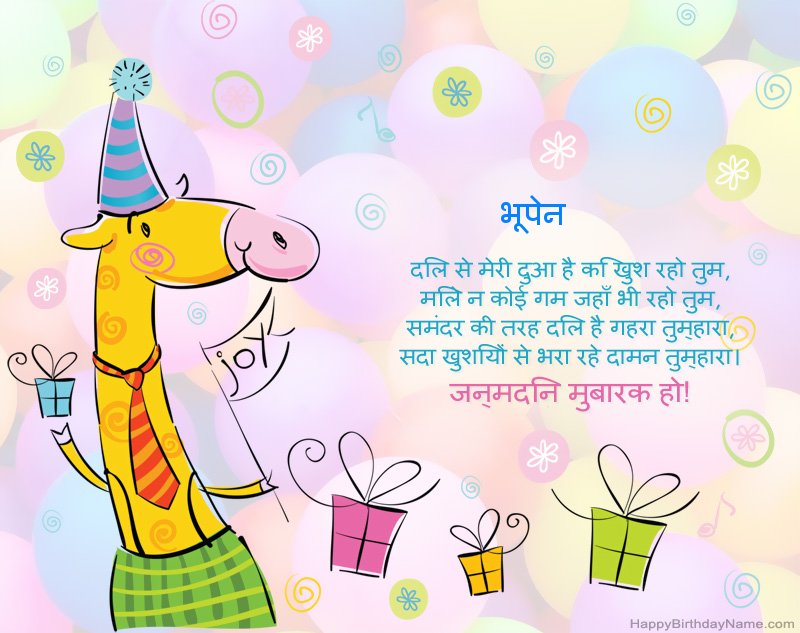 भूपेन
दलि से मेरी दुआ है कि खुश रहो तुम,
मलिे न कोई गम जहाँ भी रहो तुम,
समंदर की तरह दलि है गहरा तुम्हारा,
सदा खुशयिों से भरा रहे दामन तुम्हारा।
जन्मदनि मुबारक हो!
joy
HappyBirthdayName.com